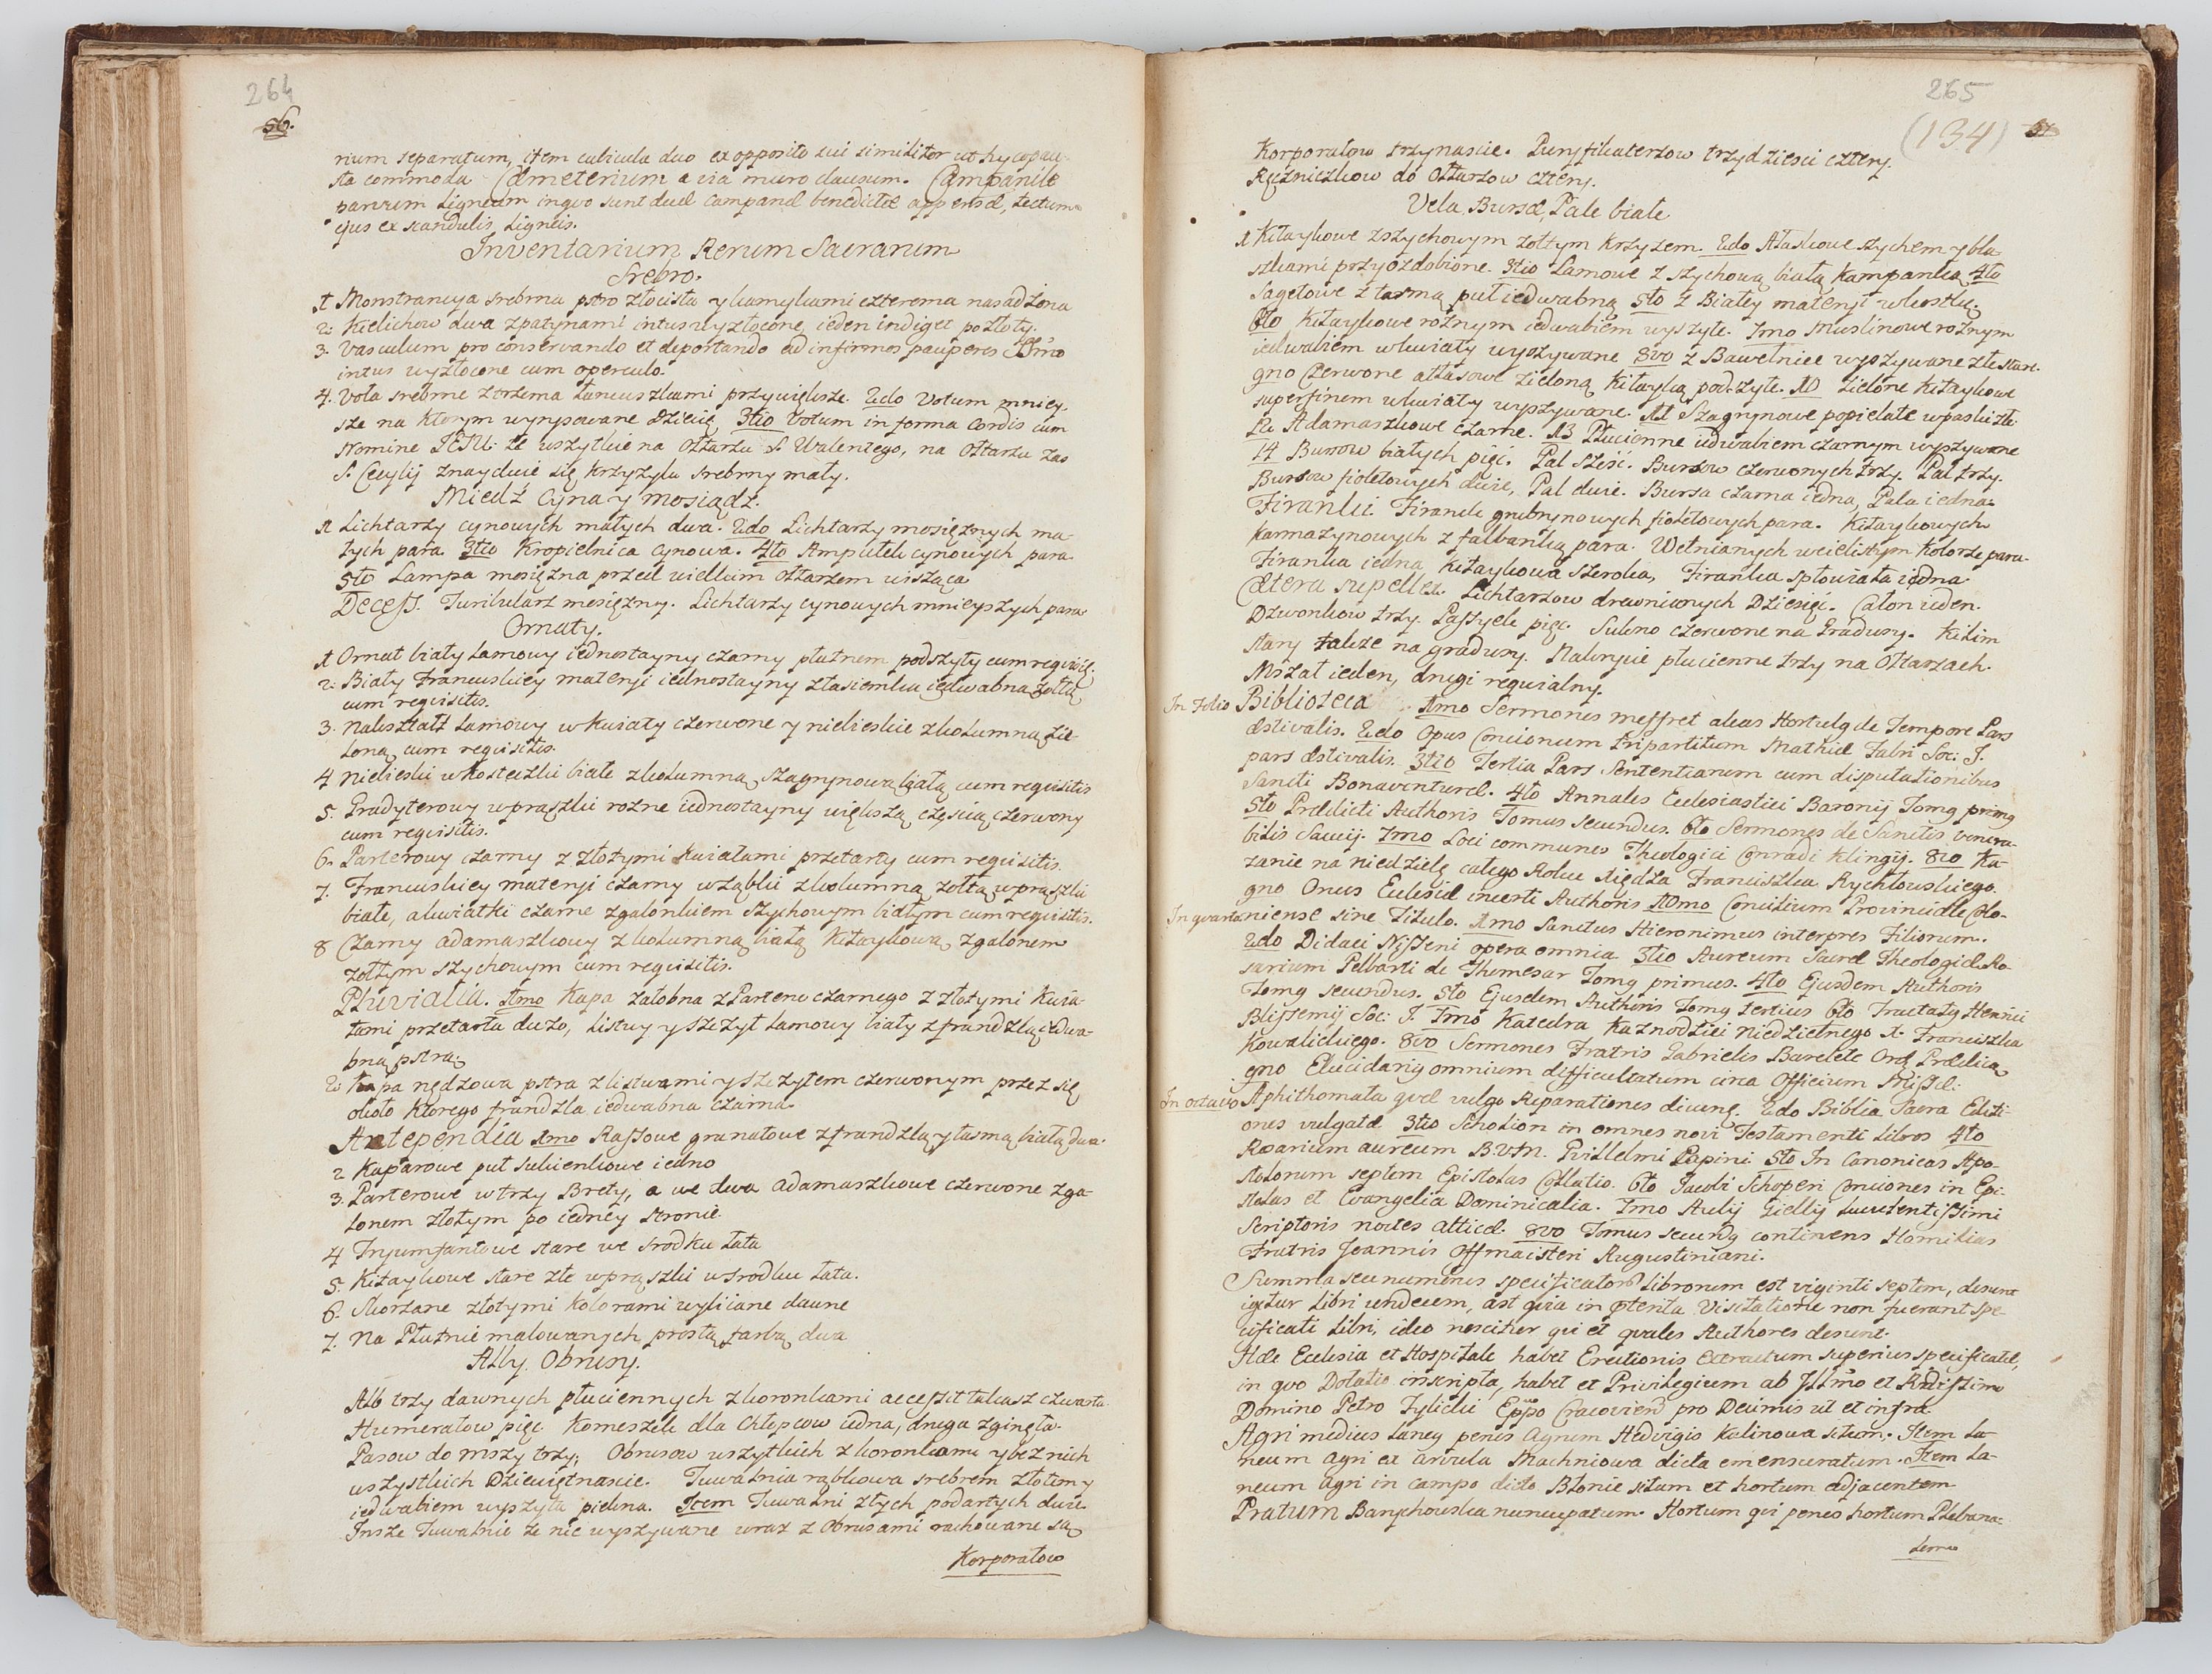 264
56.
rium separatum, item cubicula duo ex opposito sui similiter ut hypocau-
sta commoda Cæmeterium a via muro clausum. Campanile
parvum Ligneum in qvo sunt duæ Campanæ benedictæ appensæ, tectum
ejus ex scandulis Ligneis.
Inventarium Rerum Sacrarum
Srebro.
1 Monstrancya srebrna pstro złocista y kamykami czterema nasadzona
2. Kielichow dwa zpatynami intus wyzłocone, ieden indiget pozłoty.
3. Vasculum pro conservando et deportando ad infirmos pauperes SSmo
intus wyzłocone cum operculo.
4. Vota srebrne ztrzema Łancuszkami przywiększe. 2do Votum mniey-
sze na ktorym wyrysowane Dziecię, 3tio Votum in forma Cordis cum
Nomine JESU: te wszytkie na Ołtarzu S. Walentego, na Ołtarzu zas
S. Cecylij znayduie się krzyzyk srebrny mały.
Miedź Cyna y mosiądz.
1 Lichtarzy cynowych małych dwa. 2do Lichtarzy mosięznych ma-
łych para 3tio Kropielnica cynowa. 4to Ampułek cynowych para
5to Lampa mosięzna przed wielkim Ołtarzem wisząca
Decess. Turibularz mosięzny. Lichtarzy cynowych mnieyszych para
Ornaty.
1 Ornat biały Lamowy iednostayny czarny płutnem podszyty cum reqvisitis
2. Biały Francuskiey materyi iednostayny ztasiemką iedwabną zołtą
cum reqvisitis.
3. Nakształt Lamowy w kwiaty czerwone y niebieskie zkolumną zie-
loną cum reqvisitis.
4 Niebieski w kosteczki białe zkolumną szagrynową białą cum reqvisitis
5. Gradyterowy wprąszki rozne iednostayny większą częscią czerwony
cum reqvisitis.
6. Parterowy czarny z złotymi kwiatami przetarty cum reqvisitis.
7. Francuskiey materyi czarny wząbki zkolumną zołtą wprąszki
białe, akwiatki czarne zgalonkiem szychowym białym cum reqvisitis.
8 Czarny adamaszkowy zkolumną białą Kitaykową zgalonem
zołtym szychowym cum reqvisitis.
Pluvialia. 1mo Kapa załobna z Parteru czarnego z złotymi Kwia-
tami przetarta duzo, Listwy y szczyt Lamowy biały zfrandzlą iedwa-
bną pstrą.
2 Kapa nędzowa pstra zlistwami y szczytem czerwonym przez się
około ktorego frandzla iedwabna czarna
Antependia 1mo Rassowe granatowe zfrandzlą y tasmą białą dwa.
2 Kaparowe puł sukienkowe iedno
3. Parterowe w trzy Brety, a we dwa adamaszkowe czerwone zga-
lonem złotym po iedney stronie.
4 Tryumfantowe stare we srodku Łata
5. Kitaykowe stare złe wprąszki wsrodku Łata.
6. Skorzane złotymi kolorami wybiiane dawne
7. Na Płutnie malowanych prostą farbą dwa
Alby. Obrusy.
Alb trzy dawnych płuciennych zkoronkami accessit takasz czwarta.
Humerałow pięć. Komeszek dla Chłopcow iedna, druga zginęła.
Pasow do mszy trzy, Obrusow wszytkich zkoronkami y bez nich
wszystkich Dziewiętnascie. Tuwalnia rąbkowa srebrem złotem y
iedwabiem wyszyta piękna. Item Tuwalni złych podartych dwie.
Insze Tuwalnie ze nie wyszywane wraz z Obrusami rachowane są
Korporałow
265
(134) 57
Korporałow trzynascie. Puryfikaterzow trzydziesci cztery.
Ręczniczkow do Ołtarzow cztery.
Vela, Bursæ, Pale białe
1 Kitaykowe zszychowym zołtym krzyzem. 2do Atłaskowe szychem y bla
szkami przyozdobione. 3tio Lamowe z szychową białą kampanką 4to
Sagetowe z tasmą puł iedwabną 5to z Białey materyi wkostkę.
6to Kitaykowe roznym iedwabiem wyszyte. 7mo Muslinowe roznym
iedwabiem wkwiaty wyszywane 8vo z Bawełnice wyszywane złe stare.
9no Czerwone atłasowe zieloną Kitayką podszyte. 10 Zielone Kitaykowe
superfinem wkwiaty wyszywane. 11 Szagrynowe popielate wpaski złe.
12 Adamaszkowe czarne. 13 Płucienne iedwabiem czarnym wyszywane
14 Bursow białych pięć. Pal szesć. Bursow czerwonych trzy. Pal trzy.
Bursow fioletowych dwie, Pal dwie. Bursa czarna iedna, Pala iedna.
Firanki. Firanek grubrynowych fioletowych para. Kitaykowych
karmazynowych z falbanką para. Wełnianych wcielistym kolorze para.
Firanka iedna Kitaykowa szeroka, Firanka spłowiała iedna
Cætera supellex Lichtarzow drewnianych Dziesięć. Całon ieden.
Dzwonkow trzy. Passyek pięć. Sukno czerwone na Gradusy. Kilim
stary także na gradusy. Nakrycie płucienne trzy na Ołtarzach.
Mszał ieden, drugi reqvialny.
In Folio Biblioteca 1mo Sermones meffret alias Hortulg de Tempore Pars
æstivalis. 2do Opus Concionum tripartitum Mathiæ Fabri Soc: J.
pars æstivalis. 3tio Tertia Pars Sententiarum cum disputationibus
Sancti Bonaventuræ. 4to Annales Ecclesiastici Baronij Tomg primg
5to Prædicti Authoris Tomus secundus. 6to Sermones de Sanctis venera-
bilis Sancij. 7mo Loci communes Theologici Conradi Klingij. 8vo Ka-
zanie na niedzielę całego Roku Xiędza Franciszka Rychłowskiego.
9no Onus Ecclesiæ incerti Authoris 10mo Concilium Provinciale Colo-
In qvarto niense sine Titulo. 1mo Sanctus Hieronimus interpres Filiorum.
2do Didaci Nisseni opera omnia 3tio Aureum Sacræ Theologiæ Ro-
sarium Pelbarti de Themesar Tomg primus. 4to Ejusdem Authoris
Tomg secundus. 5to Ejusdem Authoris Tomg tertius 6to Tractatg Henrici
Blissemij Soc: J. 7mo Katedra Kaznodziei niedzielnego X. Franciszka
Kowalickiego. 8vo Sermones Fratris Gabrielis Barelete Ord. Prædica
9no Elucidarig omnium difficultatum circa Officium Missæ:
In octavo Aphithomata qvæ vulgo Reparationes dicung. 2do Biblia Sacra Editi-
ones vulgatæ 3tio Scholion in omnes novi Testamenti Libros 4to
Rosarium aureum B.V.M. Gvillelmi Papini 5to In Canonicas Apo-
stolorum septem Epistolas Collatio. 6to Jacobi Schoperi Conciones in Epi-
stolas et Evangelia Dominicalia. 7mo Auly Gielly Luculentissimi
Scriptoris noctes atticæ. 8vo Tomus secundg continens Homilias
Fratris Joannis Offmaisteri Augustiniani.
Summa seu numerus specificator Librorum est viginti septem, desunt
igitur Libri undecem, ast qvia in ptenta Visitatione non fuerant spe
cificati Libri, ideo nescitur qvi et qvales Authores desunt.
Hæc Ecclesia et Hospitale habet Erectionis Extractum superius specificatæ,
in qvo Dotatio inscripta, habet et Privilegium ab Illmo et Rndissimo
Domino Petro Tylicki Eppo Cracovien pro Decimis ut et infra
Agri medius Laneg penes Agrum Hedvigis Kalinowa situm. Item La-
neum agri ex arvula Machniowa dicta emensuratum. Item La-
neum agri in campo dicto Błonie situm et hortum adjacentem
Pratum Barychowska nuncupatum. Hortum qvi penes hortum Plebana-